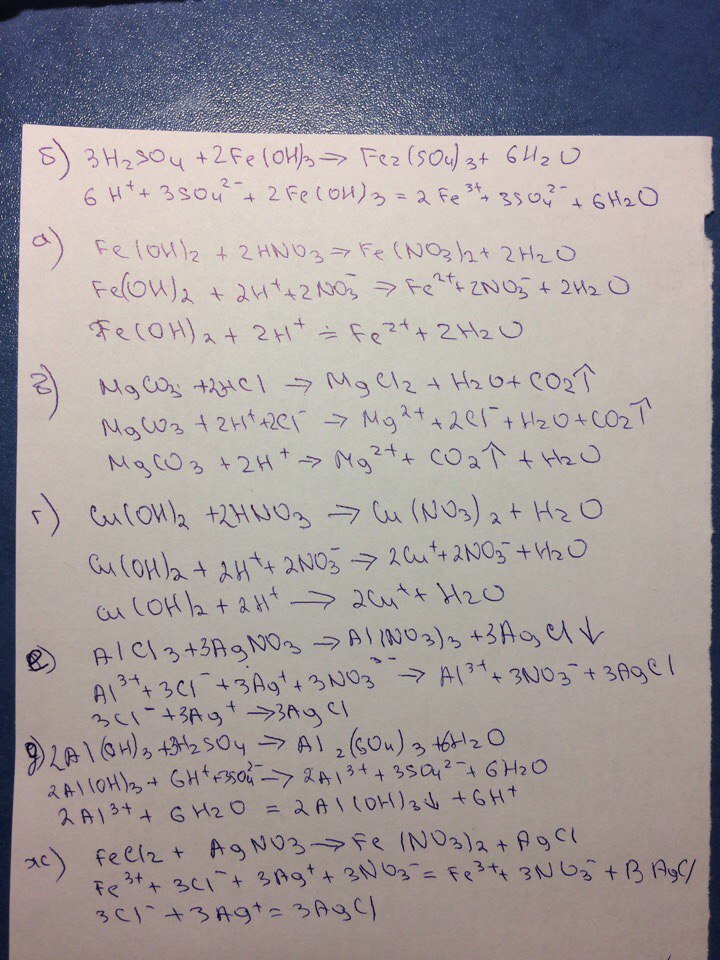 б) 3H2SO4 + 2Fe(OH)3 => Fe2(SO4)3 + 6H2O
6H⁺ + 3SO4²⁻ + 2Fe(OH)3 = 2Fe³⁺ + 3SO4²⁻ + 6H2O
а) Fe(OH)2 + 2HNO3 => Fe(NO3)2 + 2H2O
Fe(OH)2 + 2H⁺ + 2NO3⁻ => Fe²⁺ + 2NO3⁻ + 2H2O
Fe(OH)2 + 2H⁺ = Fe²⁺ + 2H2O
в) MgCO3 + 2HCl => MgCl2 + H2O + CO2↑
MgCO3 + 2H⁺ + 2Cl⁻ → Mg²⁺ + 2Cl⁻ + H2O + CO2↑
MgCO3 + 2H⁺ → Mg²⁺ + CO2↑ + H2O
г) Cu(OH)2 + 2HNO3 => Cu(NO3)2 + H2O
Cu(OH)2 + 2H⁺ + 2NO3⁻ → 2Cu⁺ + 2NO3⁻ + H2O
Cu(OH)2 + 2H⁺ → 2Cu⁺ + H2O
е) AlCl3 + 3AgNO3 → Al(NO3)3 + 3AgCl↓
Al³⁺ + 3Cl⁻ + 3Ag⁺ + 3NO3³⁻ → Al³⁺ + 3NO3⁻ + 3AgCl
3Cl⁻ + 3Ag⁺ → 3AgCl
д) 2Al(OH)3 + 3H2SO4 => Al2(SO4)3 + 6H2O
2Al(OH)3 + 6H⁺ + 3SO4²⁻ → 2Al³⁺ + 3SO4²⁻ + 6H2O
2Al³⁺ + 6H2O = 2Al(OH)3↓ + 6H⁺
ж) FeCl2 + AgNO3 → Fe(NO3)2 + AgCl
Fe³⁺ + 3Cl⁻ + 3Ag⁺ + 3NO3⁻ = Fe³⁺ + 3NO3⁻ + 3AgCl
3Cl⁻ + 3Ag⁺ = 3AgCl